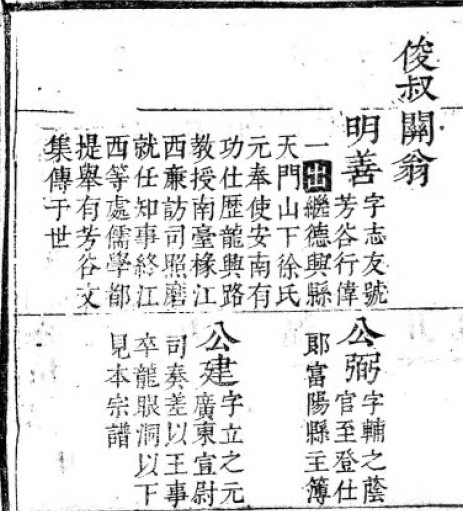 俊叔
關翁
明善
字志友號
芳谷行偉
一出繼德興縣
天門山下徐氏
元奉使安南有
功仕歷龍興路
教授南臺椽江
西廉訪司照磨
就任知事終江
西等處儒學都
提舉有芳谷文
集傳于世
公弼
字輔之蔭
官至登仕
郎富陽縣主簿
公建
字立之元
廣東宣尉
司奏差以王事
卒龍眼洞以下
見本宗譜